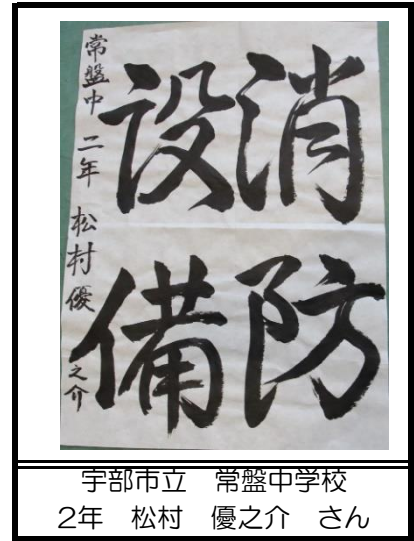 消防
設備
常盤中 二年 松村優之介
宇部市立 常盤中学校
2年 松村 優之介 さん